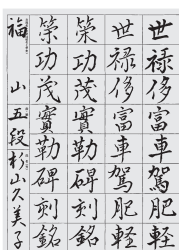 世禄侈富車駕肥軽
世禄侈富車駕肥軽
策功茂實勒碑刻銘
策功茂實勒碑刻銘
福 山 五段 杉山久美子